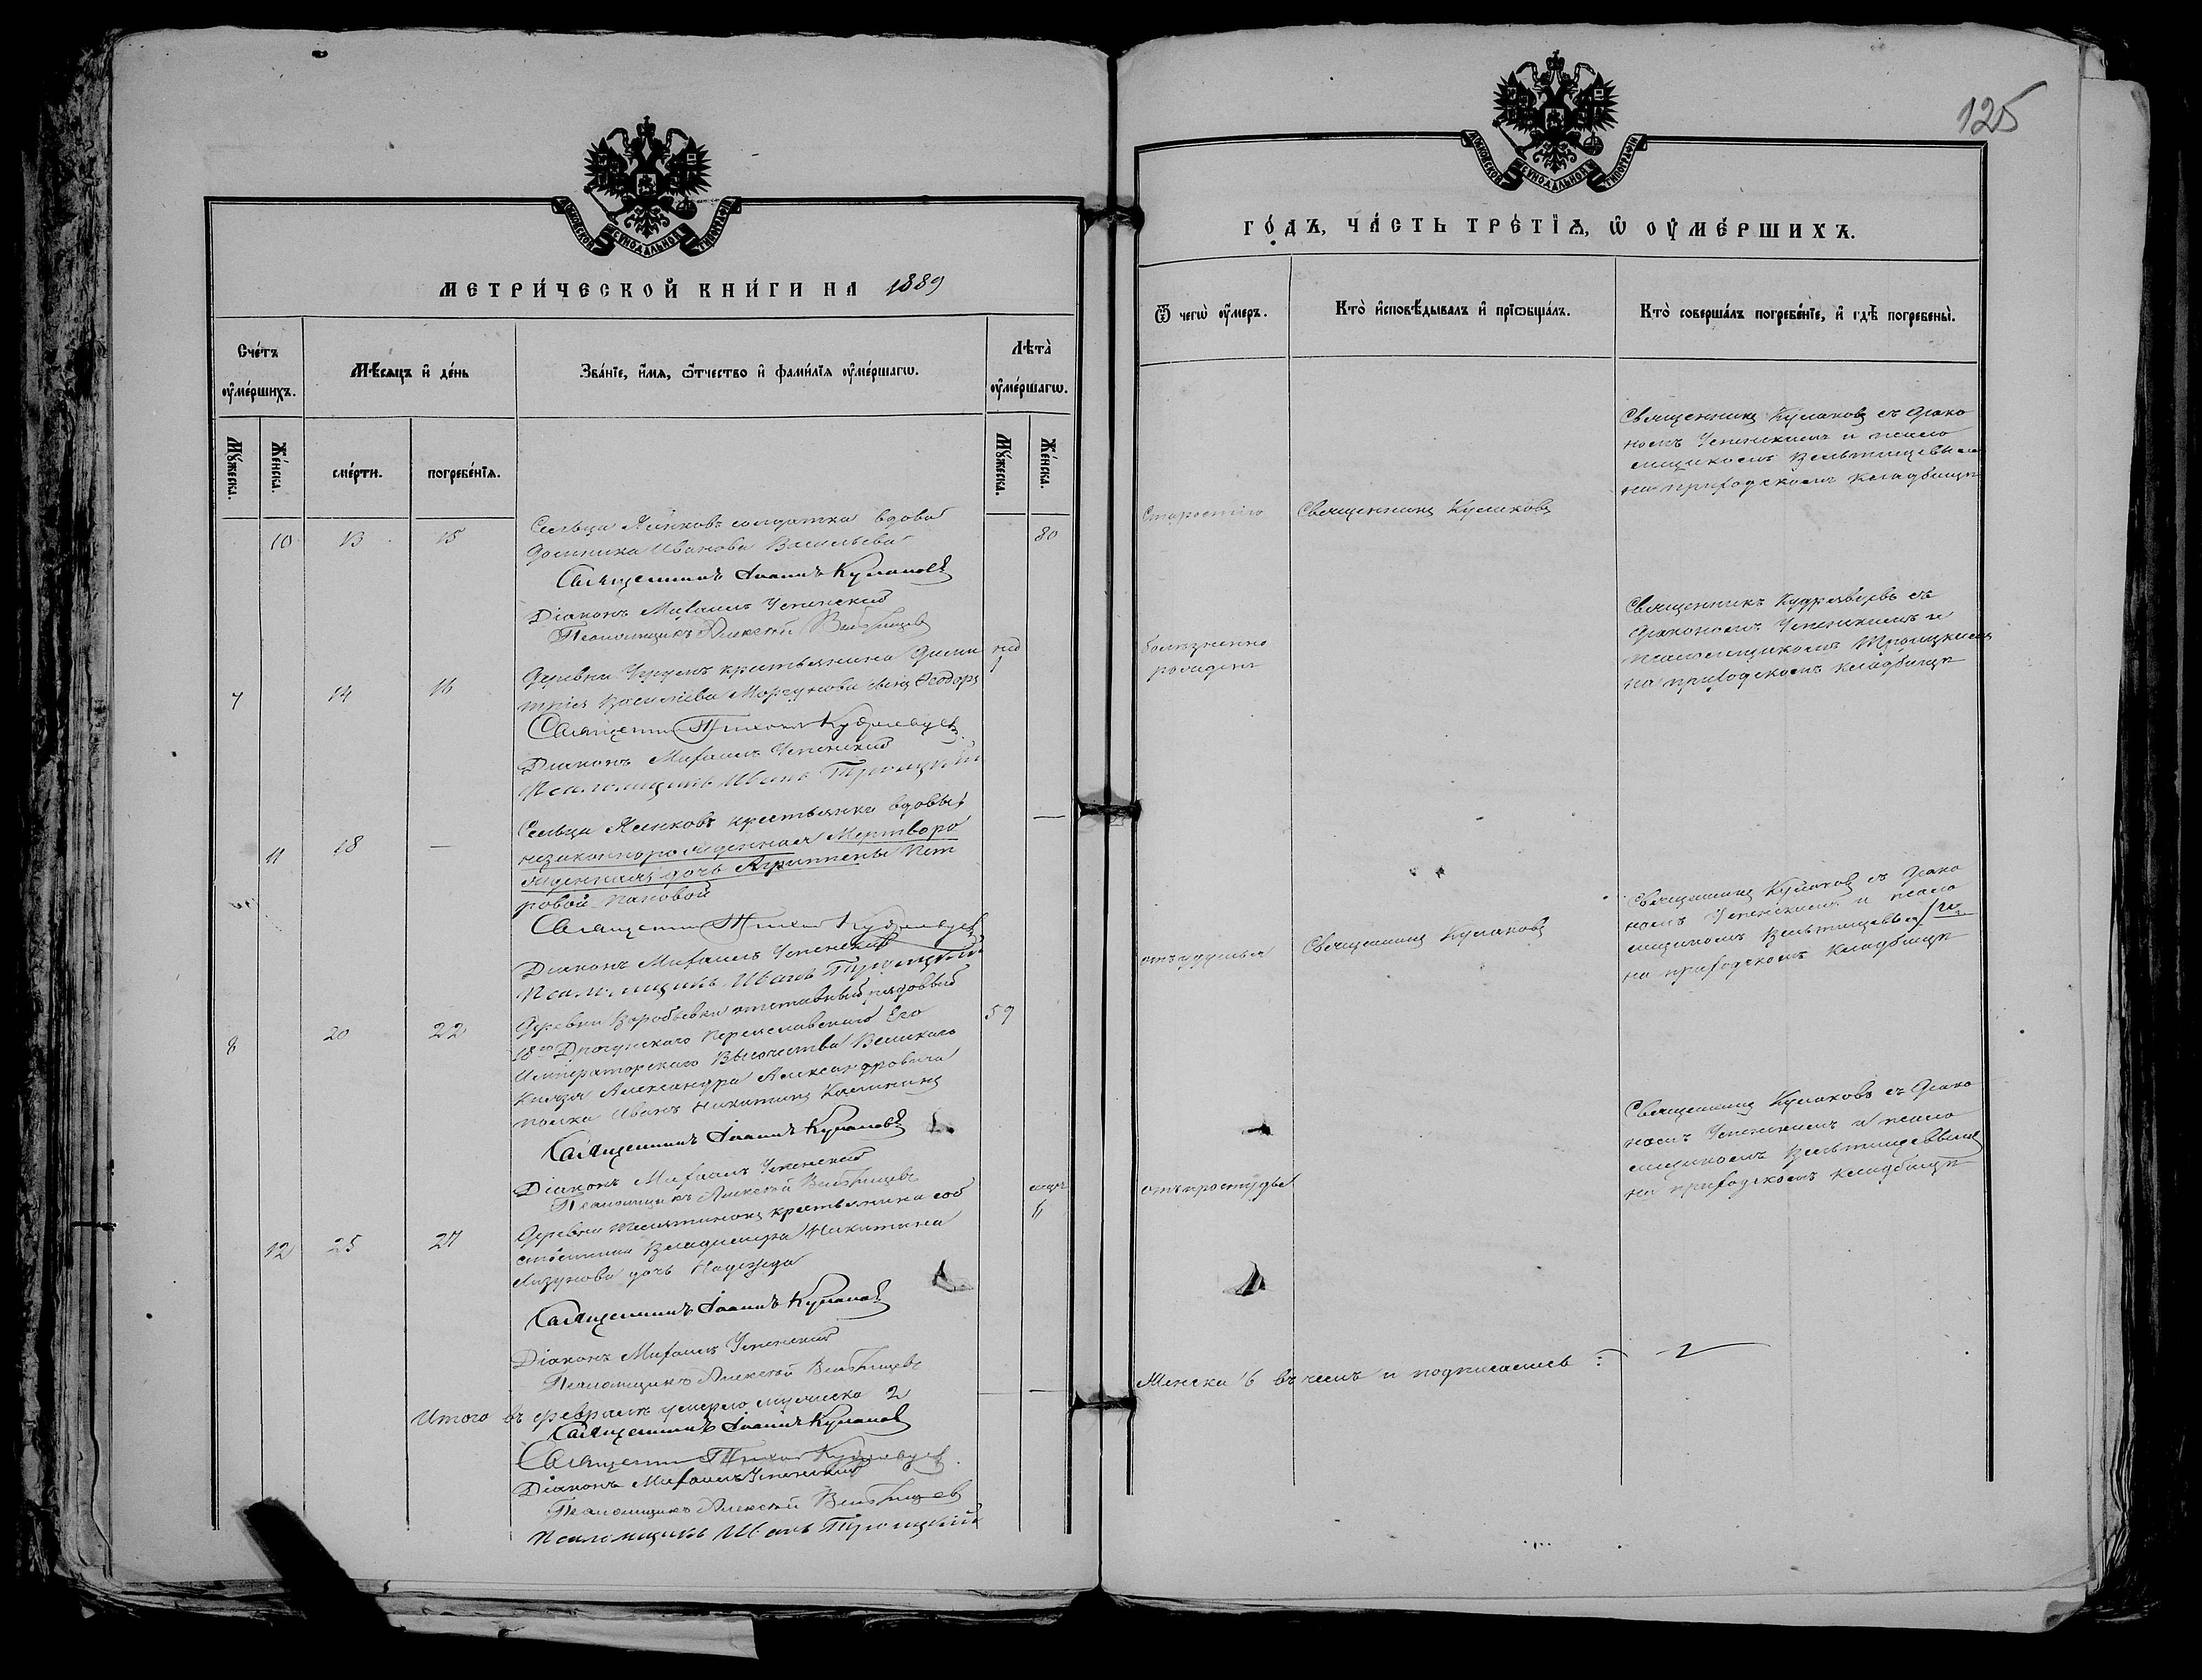 МОСКОВСКОЙ СѴНОДАЛЬНОЙ ТИПОГРАФІИ
МЕТРИ́ЧЕСКОЙ КНИ́ГИ НА 1889
Сче́тъ ѹ҆ме́ршихъ.
Мѣ́сяцъ и҆ де́нь
Зва́нїе, и҆́мѧ, ѻ҆́тчество и҆ фами́лїѧ ѹ҆ме́ршагѡ.
Лѣта̀ ѹ҆ме́ршагѡ.
Мꙋ́жеска.
Же́нска.
сме́рти.
погребе́нїѧ.
Мꙋ́жеска.
Же́нска.
10 13 15 80
Сельца солдатка вдова
Иванова Васильева
Священникъ Іоаннъ Кулаковъ
Діаконъ Михаилъ Успенскій
Псаломщикъ Алексѣй
7 14 16
Деревни крестьянина Дими
трія Васильева сынъ Ѳеодоръ
Священникъ Тихонъ Кудрявцевъ
Діаконъ Михаилъ Успенскій
Псаломщикъ Иванъ Троицкій
11 18 —
Сельца крестьянки вдовы
незаконнорожденная Мертворо
жденная дочь Агриппены Пет
ровой Пановой
Священникъ Тихонъ Кудрявцевъ
Діаконъ Михаилъ Успенскій
Псаломщикъ Иванъ Троицкій
8 20 22 59
Деревни Воробьевки отставный рядовый
18го Драгунскаго Переславскаго Его
Императорскаго Высочества Великаго
Князя Александра Александровича
полка Иванъ Никитинъ Калининъ
Священникъ Іоаннъ Кулаковъ
Діаконъ Михаилъ Успенскій
Псаломщикъ Алексѣй
12 25 27
Деревни крестьянина соб
ственника Владимира Никитина
дочь Надежда
Священникъ Іоаннъ Кулаковъ
Діаконъ Михаилъ Успенскій
Псаломщикъ Алексѣй
Итого въ февралѣ умерло мужеска 2
Священникъ Іоаннъ Кулаковъ
Священникъ Тихонъ Кудрявцевъ
Діаконъ Михаилъ Успенскій
Псаломщикъ Алексѣй
Псаломщикъ Иванъ Троицкій
125
МОСКОВСКОЙ СѴНОДАЛЬНОЙ ТИПОГРАФІИ
ГО́ДЪ, ЧА́СТЬ ТРЕ́ТЇѦ, Ѡ҆ ОУ҆МЕ́РШИХЪ.
Ѿ чегѡ̀ ѹ҆́меръ.
Кто̀ и҆сповѣ́дывалъ и҆ прїѡбща́лъ.
Кто̀ соверша́лъ погребе́нїе, и҆ гдѣ̀ погребены̀.
Старостію
Священникъ Кулаковъ
Священникъ Кулаковъ съ діако
номъ Успенскимъ и псало
мщикомъ
на приходскомъ кладбищѣ
болѣзненно
рожденъ
Священникъ Кудрявцевъ съ
діакономъ Успенскимъ и
псаломщикомъ Троицкимъ
на приходскомъ кладбищѣ
отъ удушья
Священникъ Кулаковъ
Священникъ Кулаковъ съ діако
номъ Успенскимъ и псало
мщикомъ
на приходскомъ кладбищѣ
отъ простуды
Священникъ Кулаковъ съ діако
номъ Успенскимъ и псало
мщикомъ
на приходскомъ кладбищѣ
Женска 6 въ чемъ и подписались: